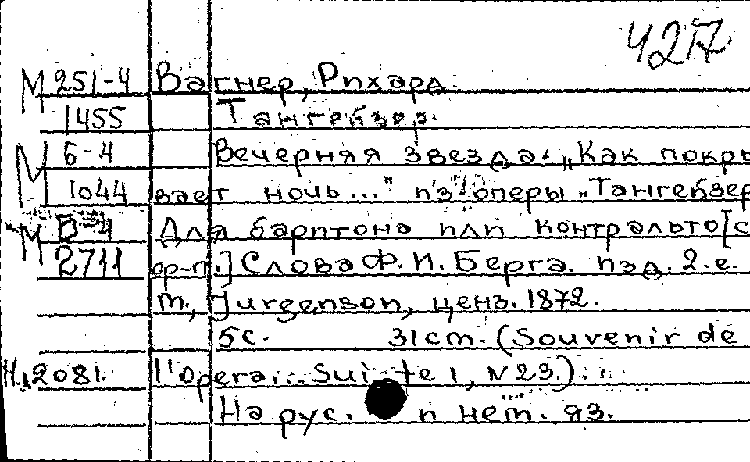 4217
М 251-4 Вагнер, Рихард.
1455 Тангейзер.
М 6-4 Вечерняя звезда: „Как покры
1044 вает ночь..." из оперы „Тангейзер
М D-4 Для баритона или контральто [с
2711 ор-п.] Слова Ф. И. Берга. изд. 2-е.
m., Jurgenson, ценз. 1872.
5с. 31cm. (Souvenir de
Н. 2081. l'Opera... Suite 1, N23.).
На рус. и нем. яз.